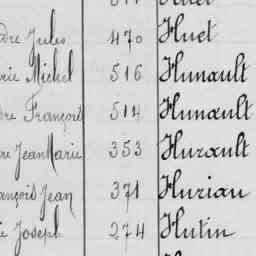 Jules 470 Huet
Michel 516 Hunault
François 514 Hunault
Jean Marie 353 Hurault
François Jean 371 Huriau
Joseph 274 Hutin